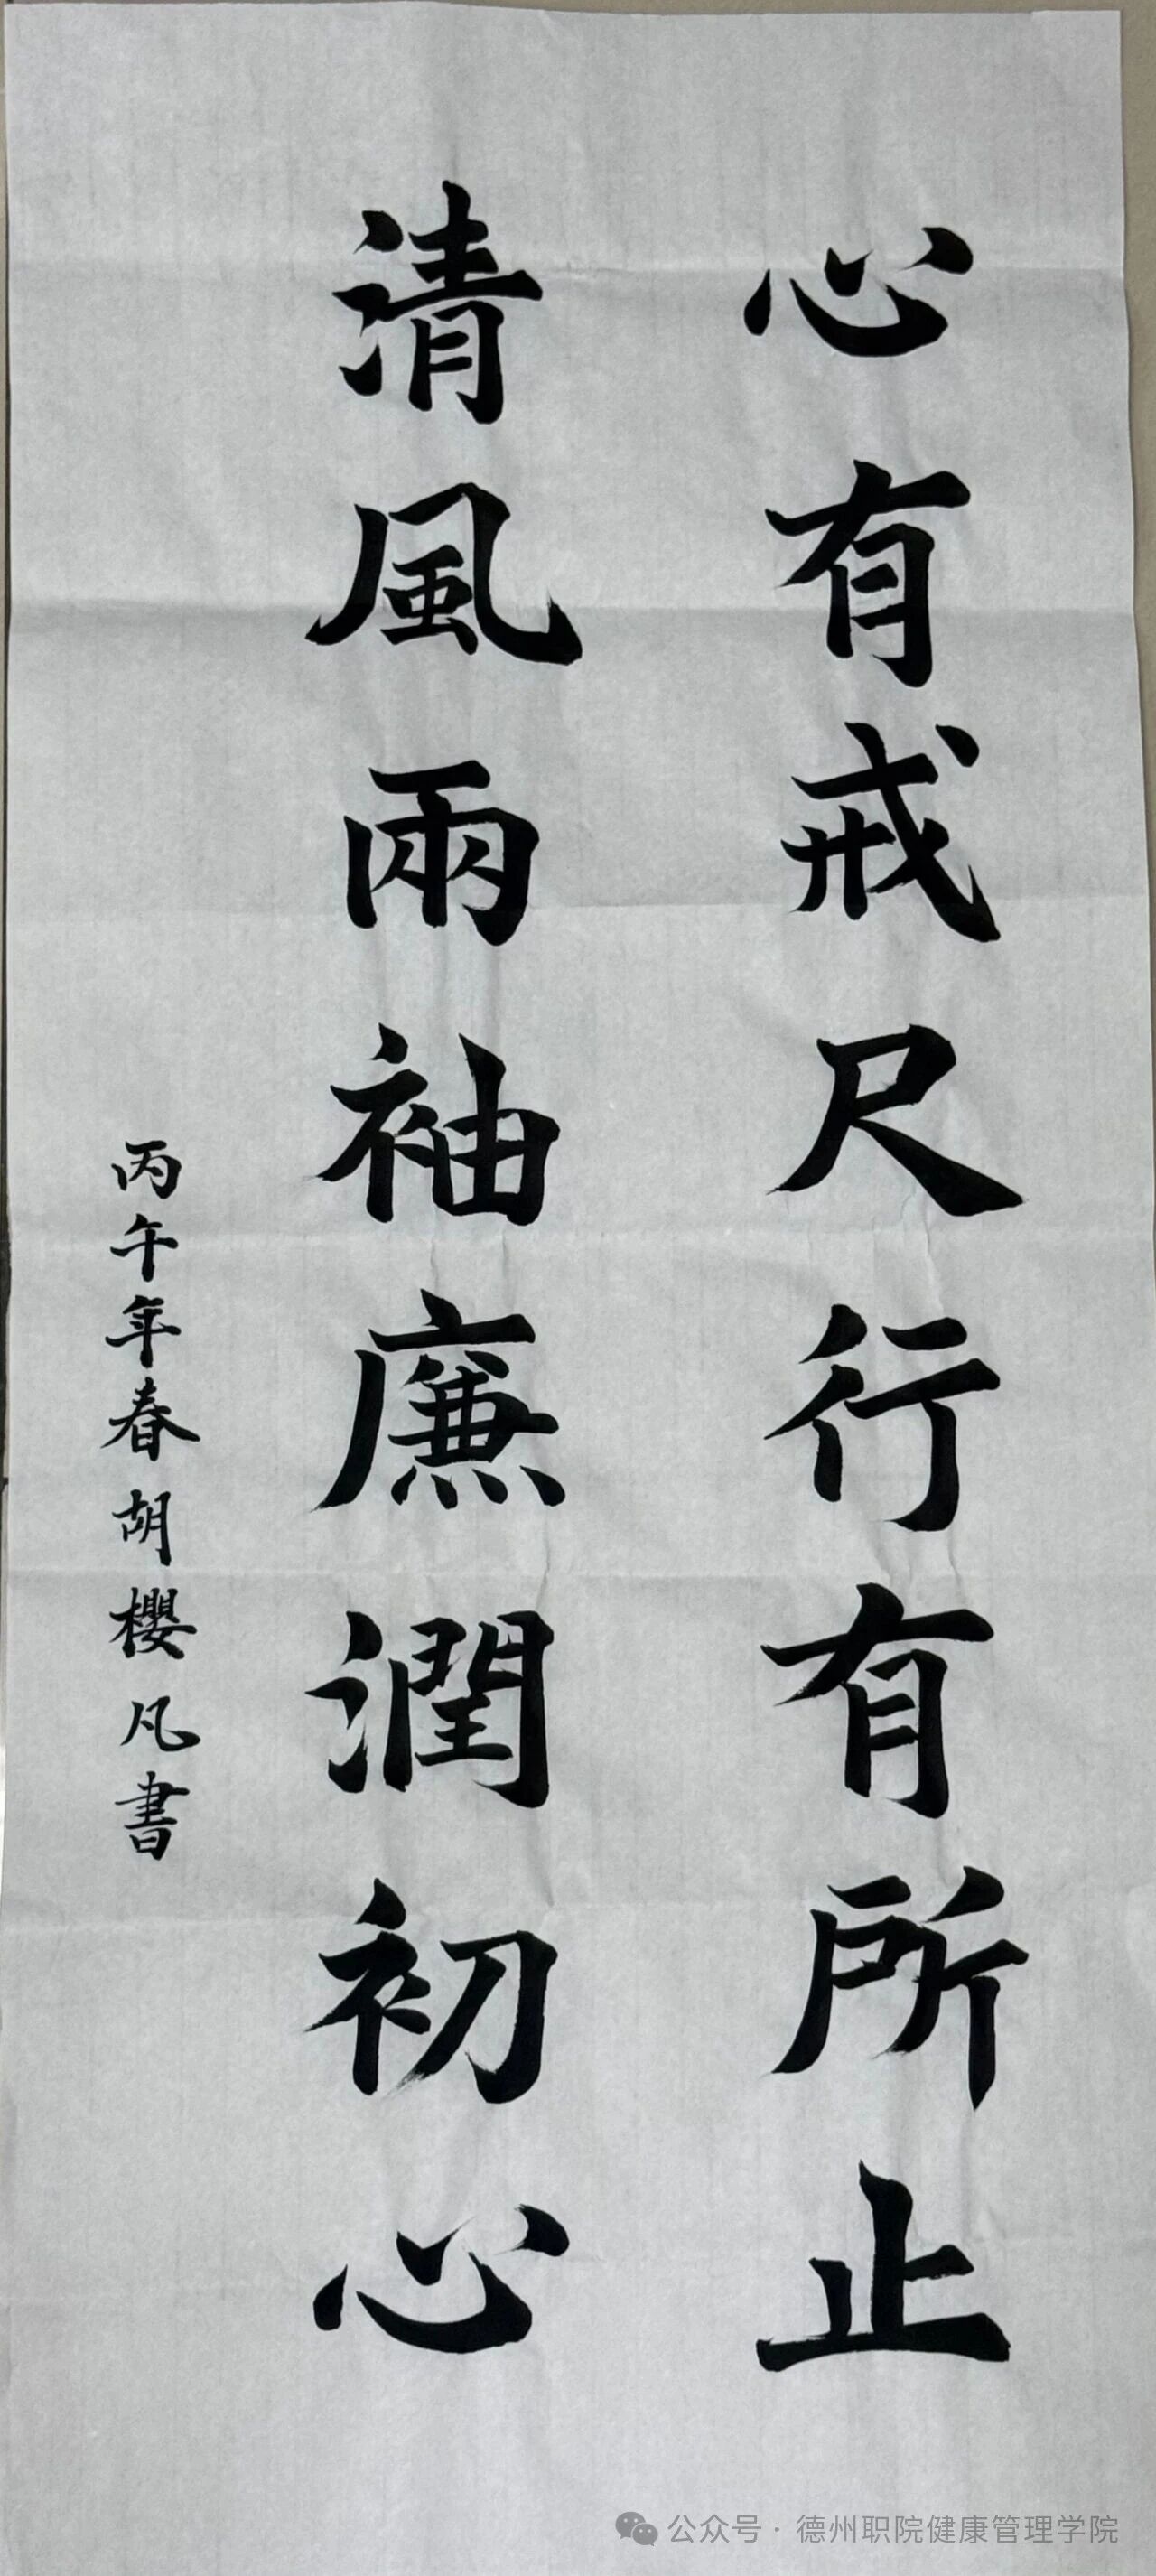 心有戒尺行有所止
清風兩袖廉潤初心
丙午年春胡櫻凡書
公众号 · 德州职院健康管理学院